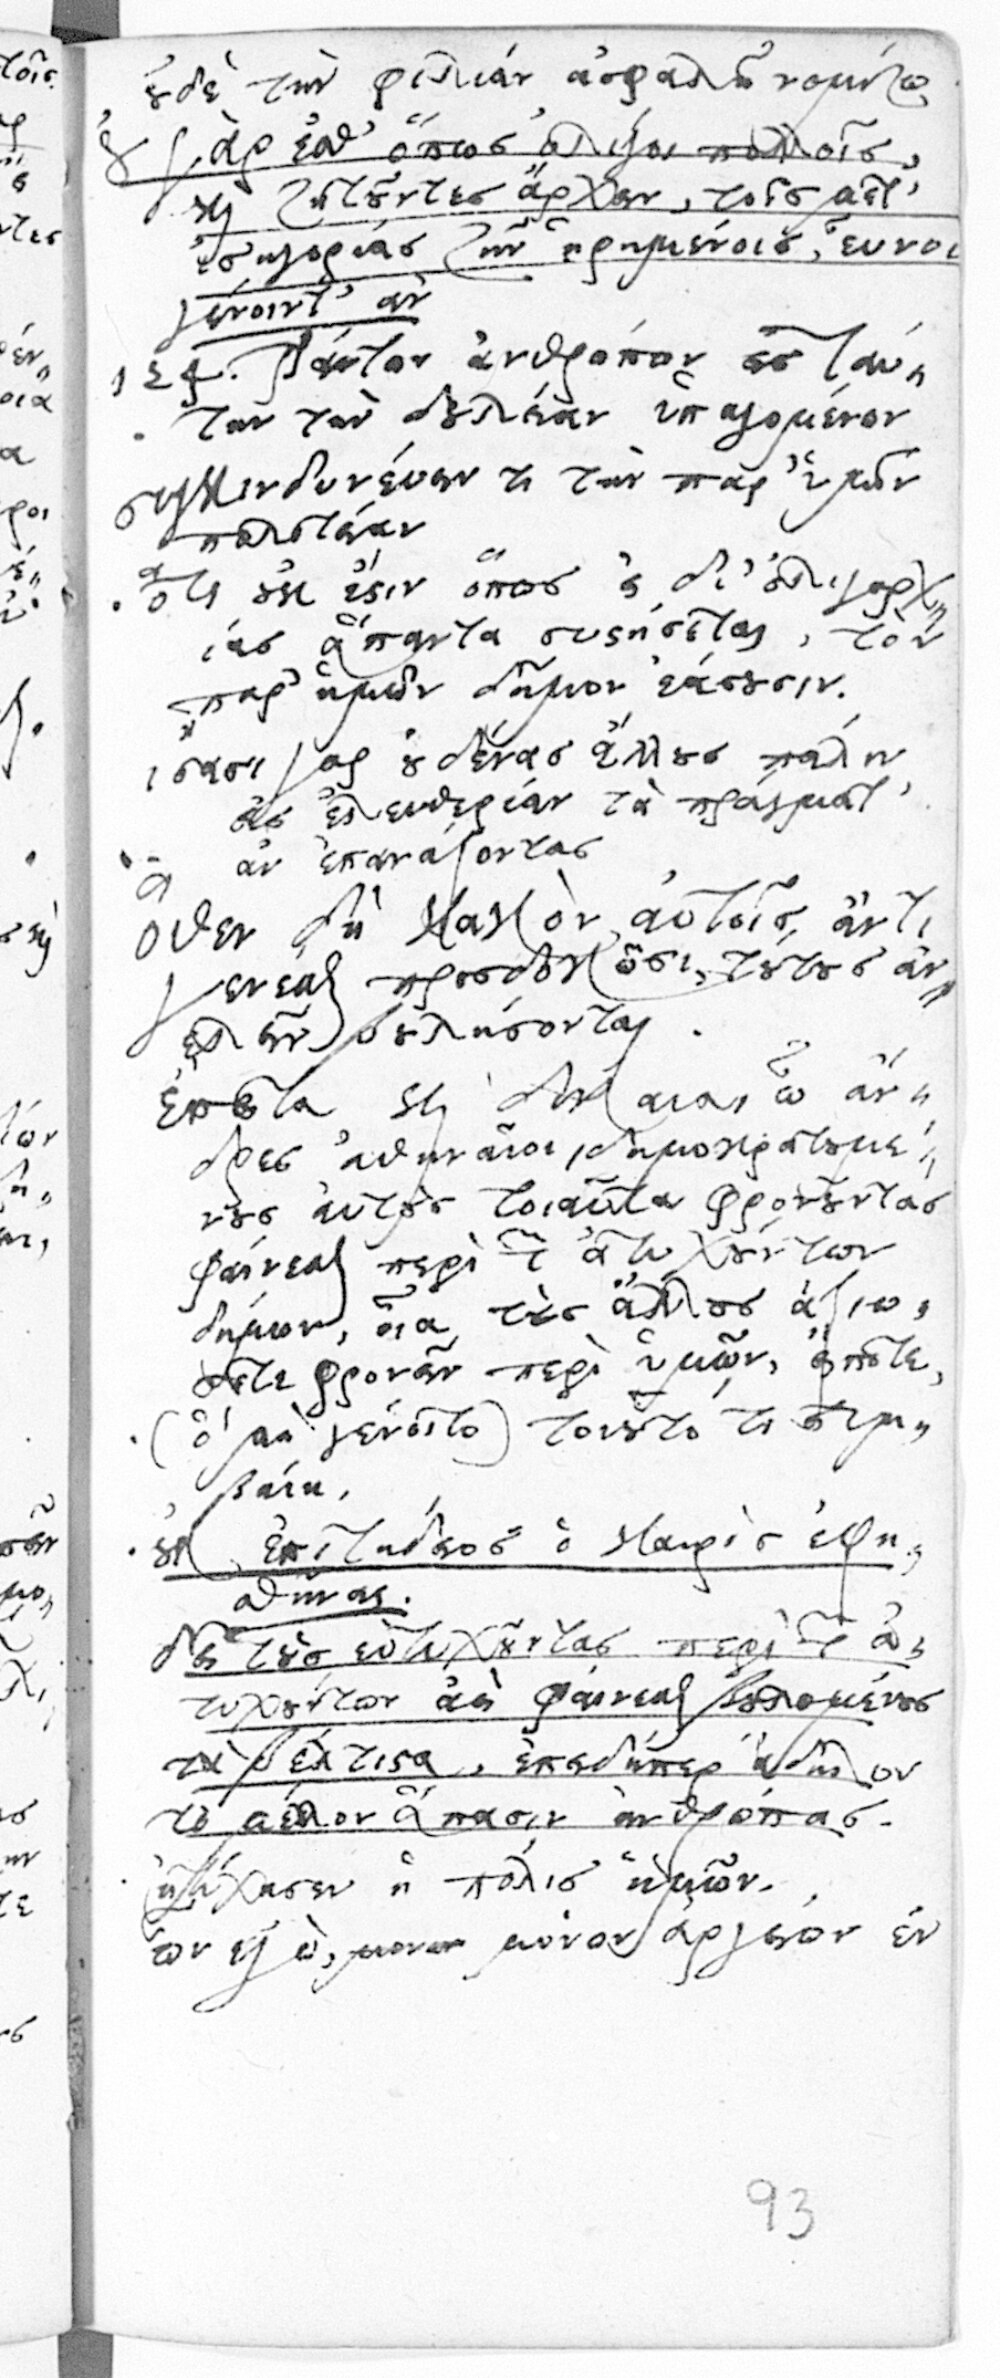 οὐδὲ τὴν φιλίαν ἀσφαλῆ νομίζω
οὐ γὰρ ἔσθ' ὅπως ὀλίγοι πολλοῖς,
καὶ ζητοῦντες ἄρχειν, τοῖς μετ'
ἰσηγορίας ζῆν ᾑρημένοις, εὖνοι
γένοιντ' ἂν
124. Πάντων ἀνθρώπων εἰς ταύ〃
την τὴν δουλείαν ὑπαγομένων
συγκινδυνεύειν τι τὴν παρ' ὑμῶν
πολιτείαν
ὅτι οὐκ ἔστιν ὅπως εἰ δι' ὀλιγαρχ〃
ίας ἅπαντα συστήσεται, τὸν
παρ' ἡμῶν δῆμον ἐάσουσιν.
ἴσασι γὰρ οὐδένας ἄλλους πάλιν
εἰς ἐλευθερίαν τὰ πράγματ'
ἂν ἐπανάξοντας
ὅθεν δὴ κακὸν αὑτοῖς ἄν τι
γενέσθαι προσδοκῶσι, τοῦτους ἀν〃
ελεῖν βουλήσονται.
ἔπειτα καὶ δίκαιον, ὦ ἄν〃
δρες ἀθηναῖοι, δημοκρατουμέ〃
νους αὐτοὺς τοιαῦτα φρονοῦντας
φαίνεσθαι περὶ τῶν ἀτυχούντων
δήμων, οἷα τοὺς ἄλλους ἀξιώ〃
σετε φρονεῖν περὶ ὑμῶν, εἴποτε,
(ὃ μὴ γένοιτο) τοιοῦτό τι συμ〃
βαίη.
οὐκ ἐπιτήδειος ὁ καιρὸς ἐφη〃
σθῆναι.
δεῖ τοὺς εὐτυχοῦντας περὶ τῶν ἀ〃
τυχούντων ἀεὶ φαίνεσθαι βουλομένους
τὰ βέλτιστα, ἐπειδήπερ ἄδηλον
τὸ μέλλον ἅπασιν ἀνθρώποις.
ἠτύχησεν ἡ πόλις ἡμῶν.
ὧν ἐγὼ, μόνον ἀργείων ἐν
93